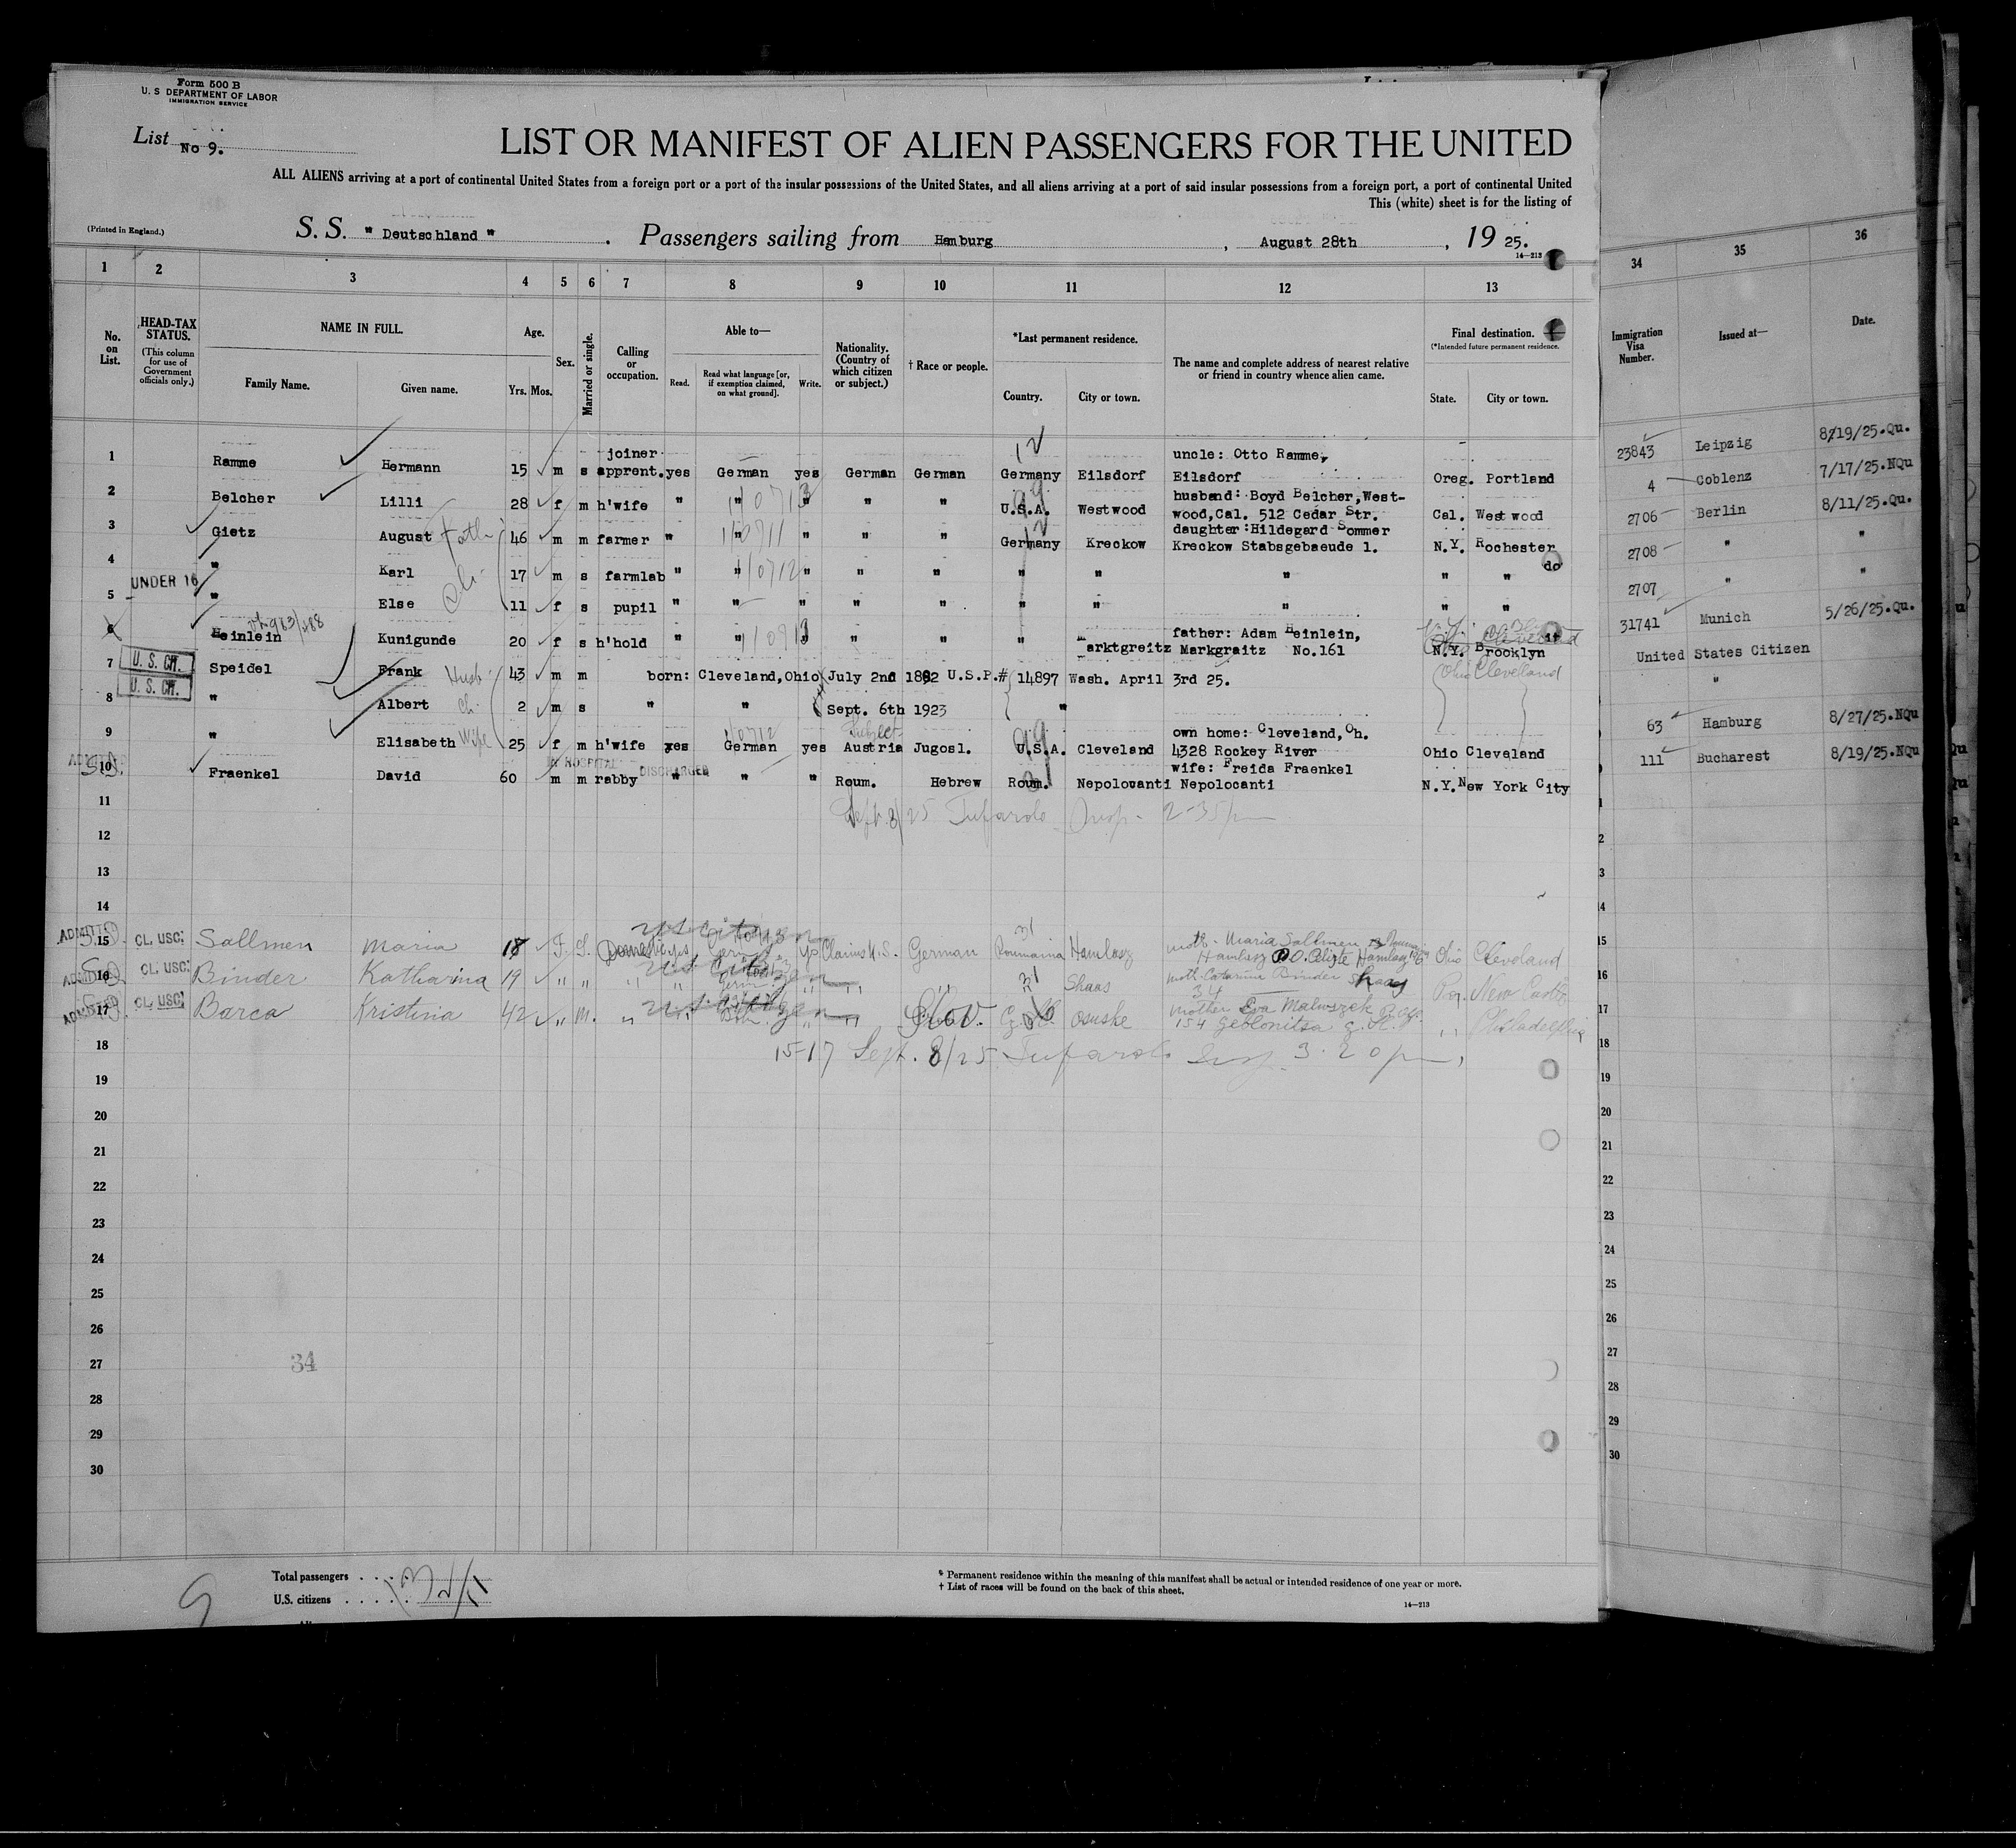 Form 500 B
U. S DEPARTMENT OF LABOR
IMMIGRATION SERVICE
List No 9.
LIST OR MANIFEST OF ALIEN PASSENGERS FOR THE UNITED
ALL ALIENS arriving at a port of continental United States from a foreign port or a port of the insular possessions of the United States, and all aliens arriving at a port of said insular possessions from a foreign port, a port of continental United
This (white) sheet is for the listing of
(Printed in England.)
S. S. " Deutschland " . Passengers sailing from Hamburg , August 28th , 19 25.
14—213
1 2 3 4 5 6 7 8 9 10 11 12 13 34 35 36
No. on List.
HEAD-TAX STATUS.
(This column for use of Government officials only.)
NAME IN FULL.
Family Name. Given name.
Age.
Yrs. Mos.
Sex.
Married or single.
Calling or occupation.
Able to—
Read. Read what language [or, if exemption claimed, on what ground]. Write.
Nationality. (Country of which citizen or subject.)
† Race or people.
*Last permanent residence.
Country. City or town.
The name and complete address of nearest relative or friend in country whence alien came.
Final destination.
(*Intended future permanent residence.
State. City or town.
Immigration Visa Number.
Issued at—
Date.
1 Ramme Hermann 15 m s joiner apprent. yes German yes German German Germany Eilsdorf uncle: Otto Ramme, Eilsdorf Oreg. Portland 23843 Leipzig 8/19/25.Qu.
2 Belcher Lilli 28 f m h'wife " " " " " U.S.A. Westwood husband: Boyd Belcher, West-wood, Cal. 512 Cedar Str. Cal. Westwood 4 Coblenz 7/17/25.NQu
3 Gietz August 46 m m farmer " " " " " Germany Kreckow daughter: Hildegard Sommer Kreckow Stabsgebaeude 1. N.Y. Rochester 2706 Berlin 8/11/25.Qu.
4 " Karl 17 m s farmlab " " " " " " " " " " do 2708 " "
UNDER 16
5 " Else 11 f s pupil " " " " " " " " " " 2707 " "
6 Heinlein Kunigunde 20 f s h'hold " " " " " " Marktgreitz father: Adam Heinlein, Markgraitz No.161 N.Y. Brooklyn 31741 Munich 5/26/25.Qu.
U. S. CIT.
7 Speidel Frank Husb. 43 m m born: Cleveland, Ohio July 2nd 1882 U.S.P.# 14897 Wash. April 3rd 25. Ohio Cleveland United States Citizen
U. S. CIT.
8 " Albert ch. 2 m s " " Sept. 6th 1923 " "
9 " Elisabeth Wife 25 f m h'wife yes German yes Austria Jugosl. U.S.A. Cleveland own home: Cleveland, Oh. 4328 Rockey River Ohio Cleveland 63 Hamburg 8/27/25.NQu
IN HOSPITAL DISCHARGED
10 Fraenkel David 60 m m rabby " " " Roum. Hebrew Roum. Nepolovanti wife: Freida Fraenkel Nepolocanti N.Y. New York City 111 Bucharest 8/19/25.NQu
11
Sept. 8/25 Tufarolo Insp. 2-35 pm
12
13
14
ADMITTED
15 CL. USC. Sallmen Maria 18 F. S. Domestic yes yes Claims U.S. German Roumania Hamlesz moth - Maria Sallmen Ohio Cleveland
16 CL. USC. Binder Katharina 19 " " " " " " " Shaas moth. Catarine Binder Shaas Pa. New Castle
ADMITTED
17 CL. USC. Barca Kristina 42 " M. " " " " Slov. Osuske mother Eva Maluszek 154 " Philadelphia
18
15-17 Sept. 8/25 Tufarolo Insp. 3.20 pm,
19
20
21
22
23
24
25
26
27
34
28
29
30
Total passengers . . . .
U.S. citizens . . . . .
9
* Permanent residence within the meaning of this manifest shall be actual or intended residence of one year or more.
† List of races will be found on the back of this sheet.
14—213